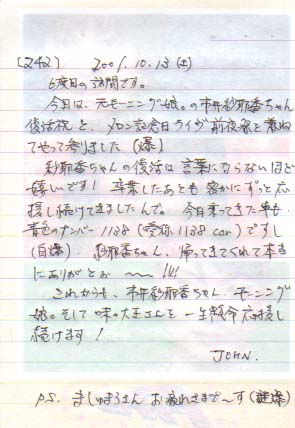 [242] 2001.10.13(土)
6度目の訪問です。
今日は、元モーニング娘。の市井紗耶香ちゃん
復活祝と、メロン記念日ライブ前夜祭と兼ね
てやって参りました（爆）
紗耶香ちゃんの復活は言葉にならないほど
嬉しいです！ 卒業したあとも密かにずっと応
援し続けてきましたんで。 今日乗ってきた車も
青色のナンバー1138（愛称1138 car）ですし
（自爆） 紗耶香ちゃん、帰ってきてくれて本当
にありがとぉ 〜〜!!!
これからも、市井紗耶香ちゃん、モーニング
娘。そして味の大王さんを一生懸命応援し
続けます！
JOHN.
P.S. ましゅまろさん お疲れさまで〜す（謎爆）